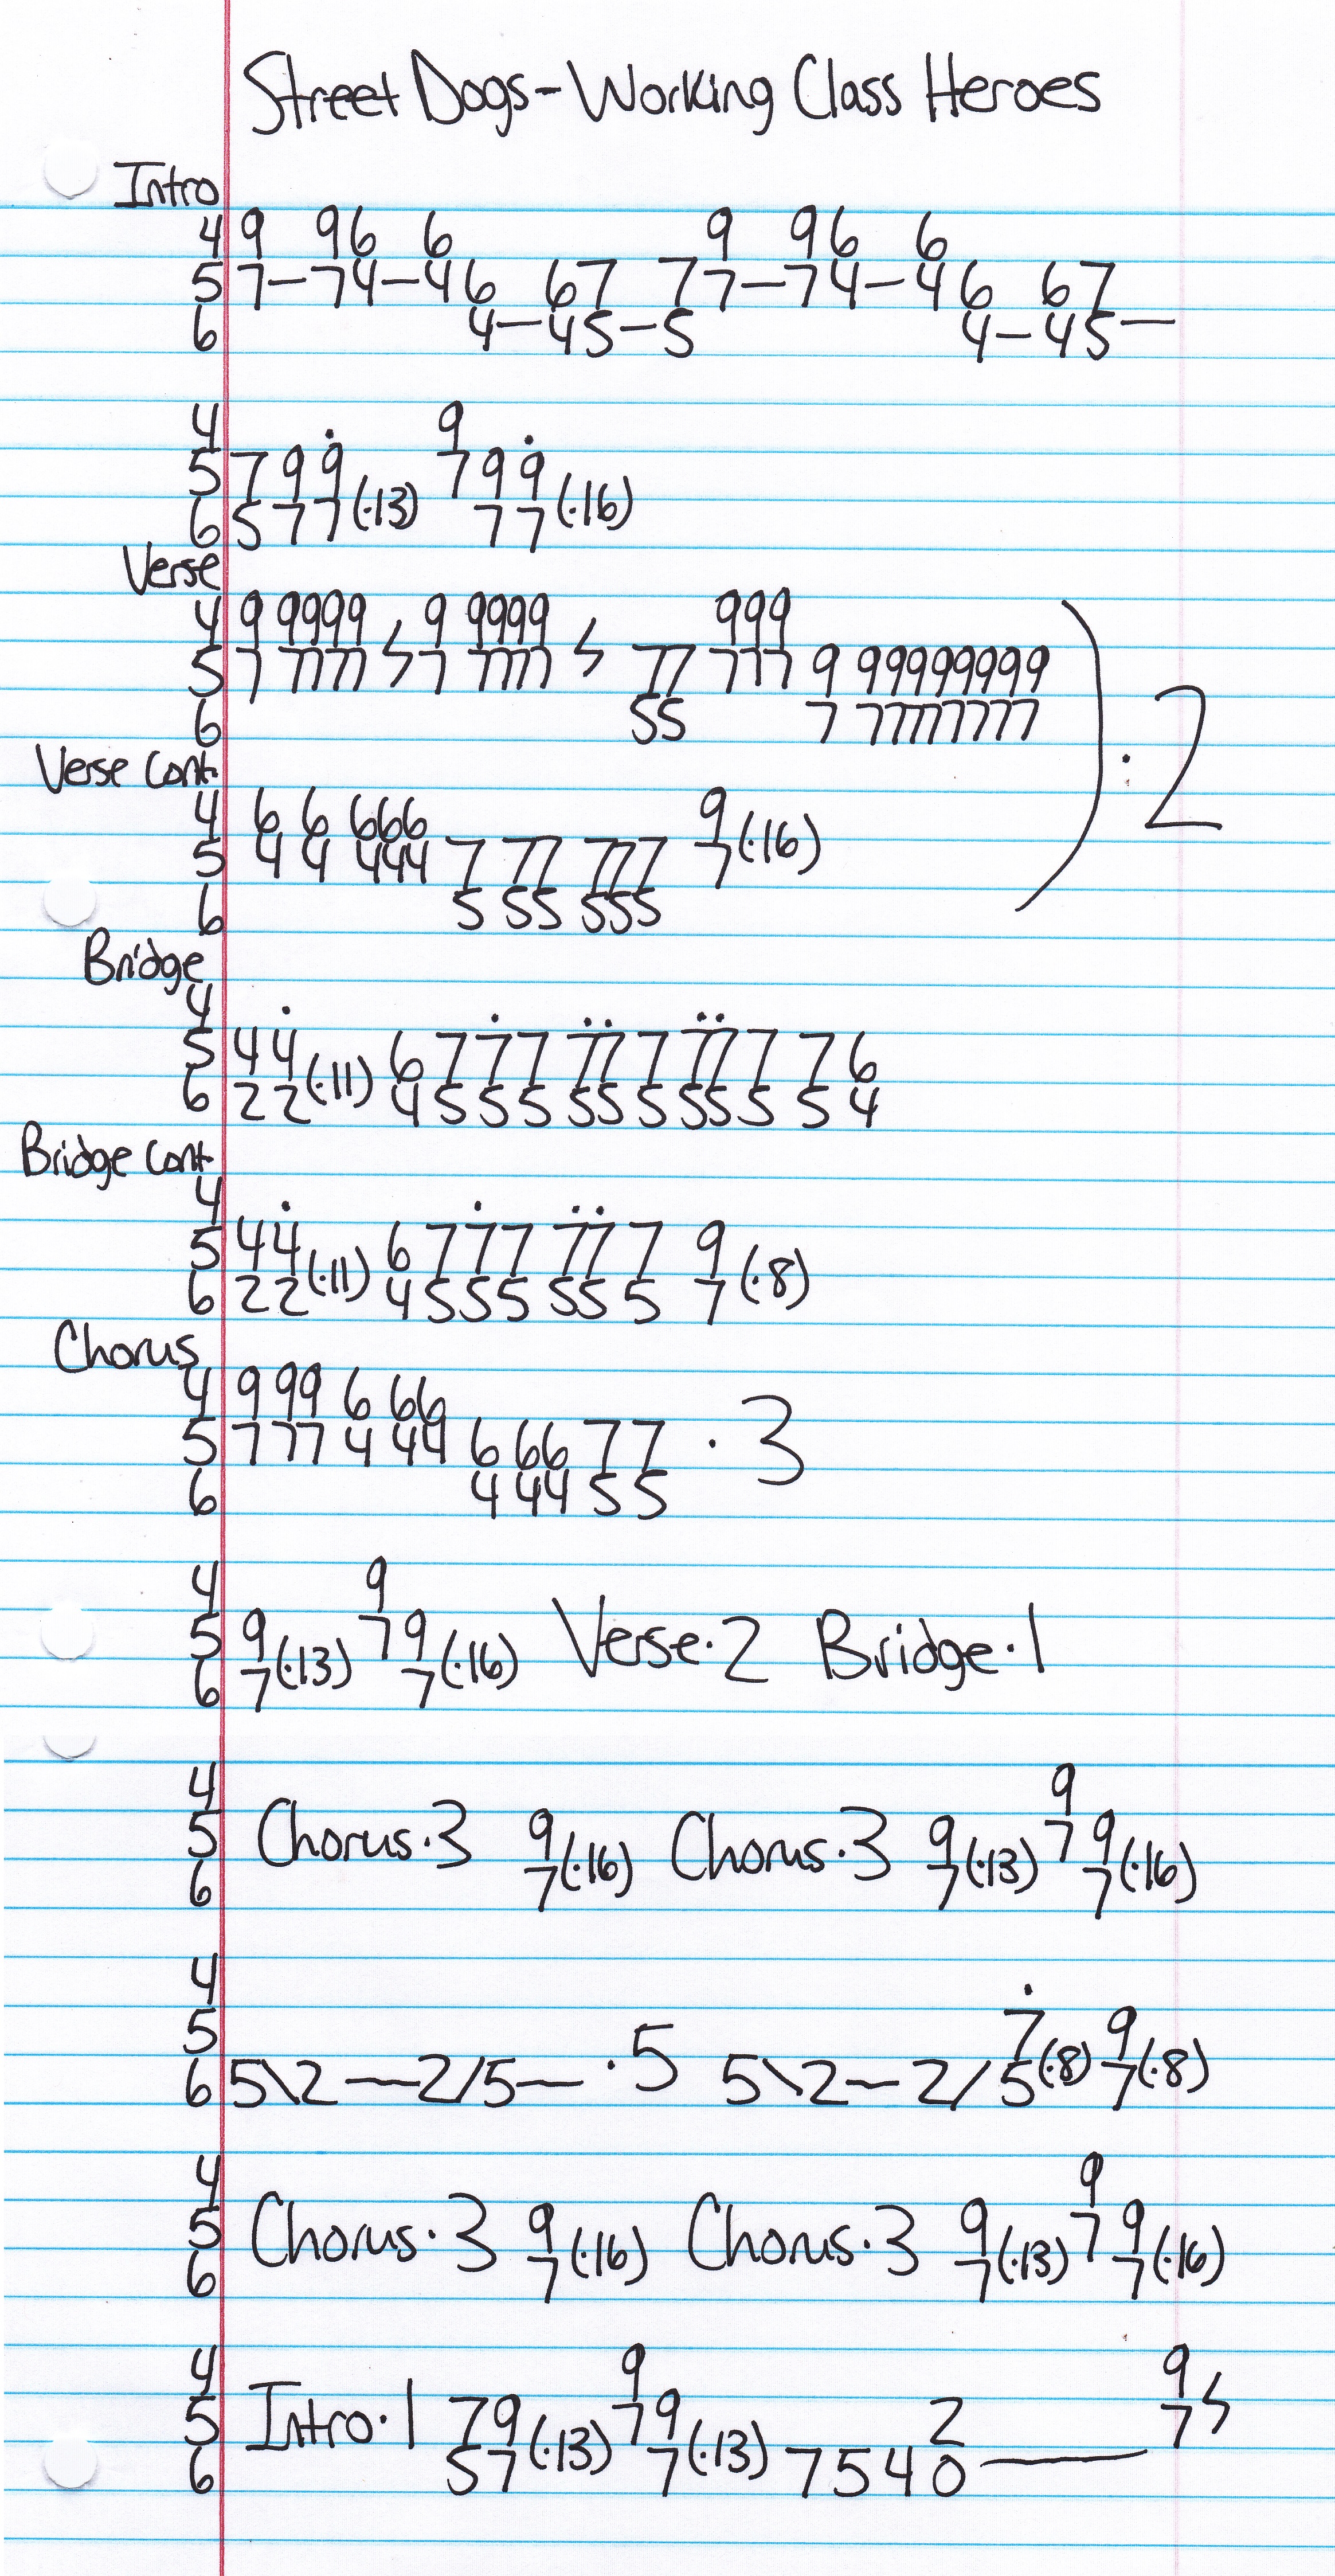 Street Dogs - Working Class Heroes
Intro
4 9 96 6 9 96 6
5 7—74—46 67 77—74—46 67
6 4—45—5 4—45—
4 9
5 799(·13) 799(·16)
6 577 77
Verse
4 9 9999 9 9999 999
5 7 7777 7 7777 77 777 9 99999999
6 55 7 77777777
Verse Cont.
4 6 6 666 9
5 4 4 444 7 77 777 7(·16)
6 5 55 555
) · 2
Bridge
4
5 44 6777 777 777 76
6 22(·11) 4555 555 555 54
Bridge Cont.
4
5 44 6777 777 9
6 22(·11) 4555 555 7(·8)
Chorus
4 9 99 6 66
5 7 77 4 44 6 66 77 · 3
6 4 44 55
4 9
5 9(·13) 79(·16) Verse·2 Bridge·1
6 7 7
4 9
5 Chorus·3 9(·16) Chorus·3 9(·13) 79(·16)
6 7 7 7
4
5 ·5 7 9
6 5\2—2/5— 5\2—2/5(·8) 7(·8)
4 9
5 Chorus·3 9(·16) Chorus·3 9(·13) 79(·16)
6 7 7 7
4 9 9
5 Intro·1 79(·13) 79(·13) 2 7
6 57 7 7540—